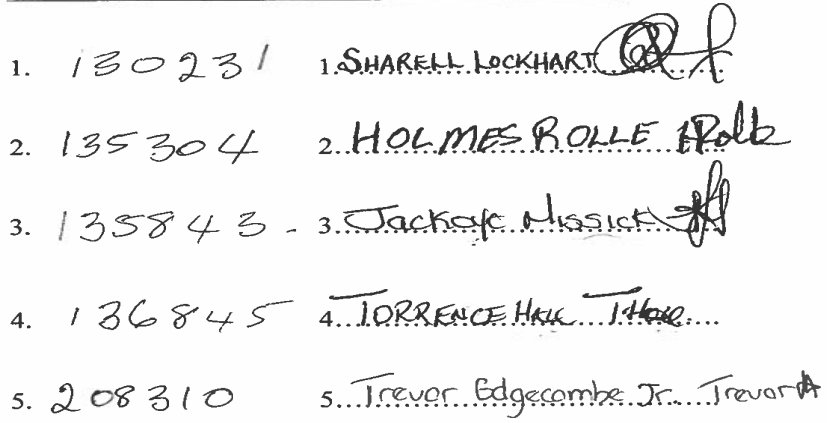 1. 130231 1. SHARELL LOCKHART
2. 135304 2. HOLMES ROLLE HRolle
3. 135843 - 3. Jackaye Missick
4. 136845 4. TORRENCE HALL THall
5. 208310 5. Trevor Edgecombe Jr. Trevor